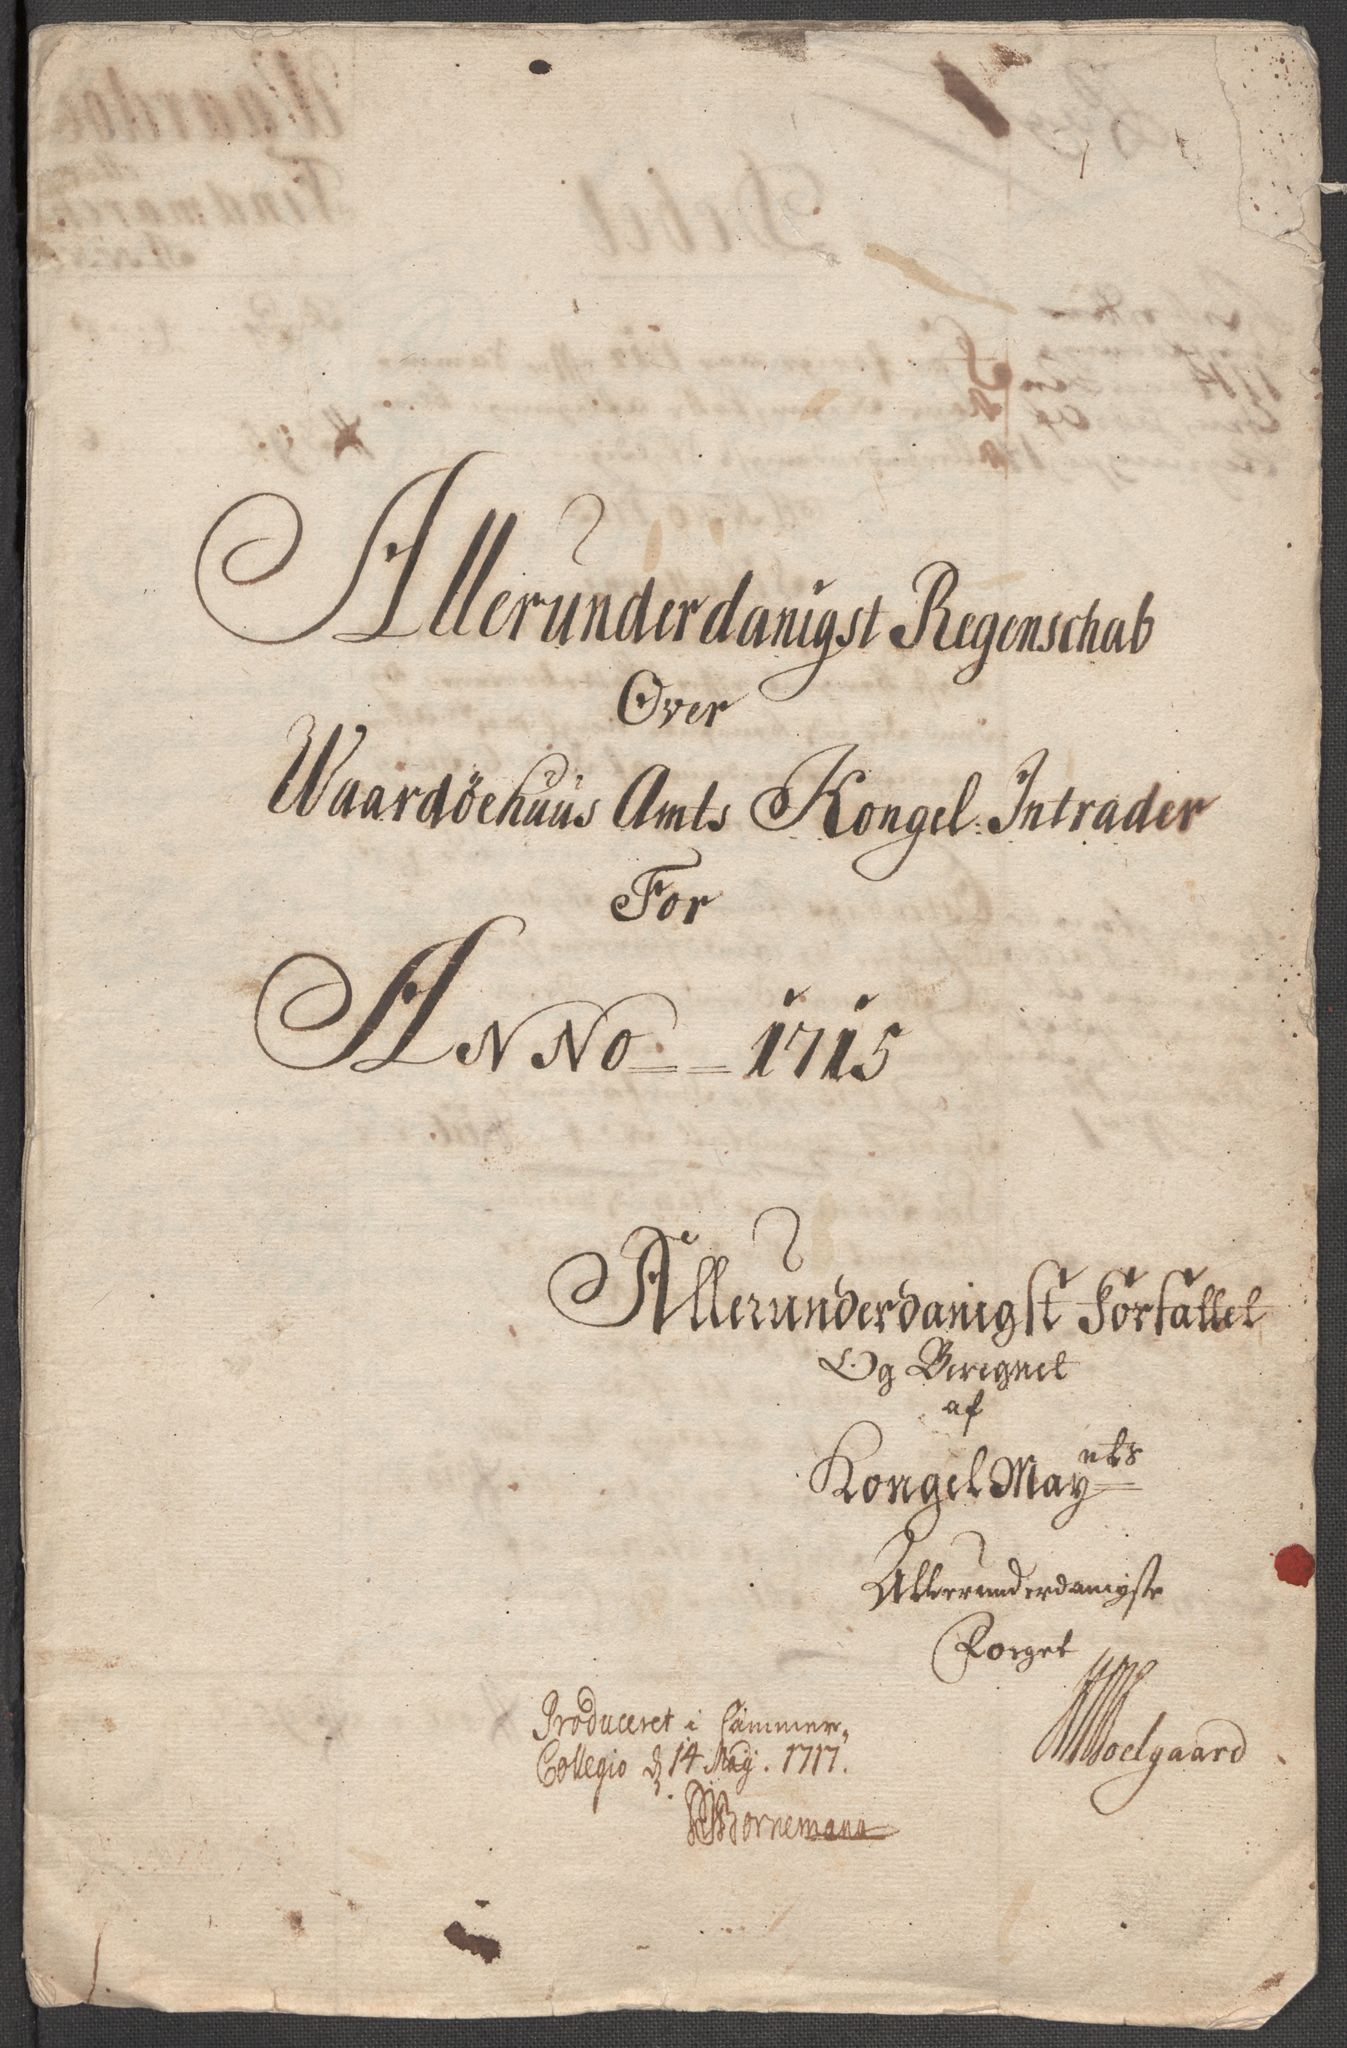 Allerunderdanigst Regenschab
Over
Waardöehuus Amts Kongel: Intrader
For
ANNO == 1715
Allerunderdanigst forfattet
Og Beregnet
af
Kongel May nts
Allerunderdanigste
Foeget
Moelgaard
Produceret i Cammer-
Collegio d 14 May. 1717.
Bornemann